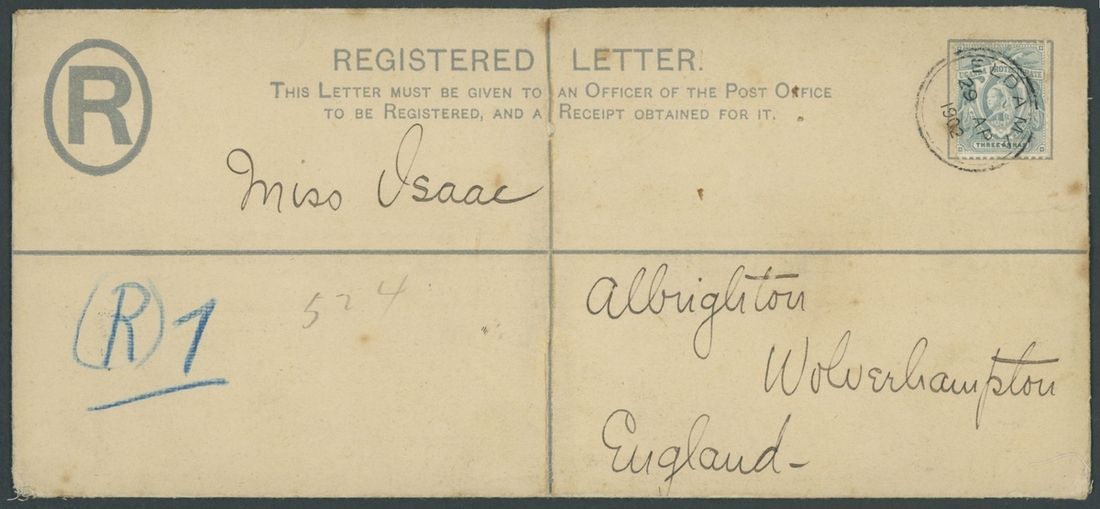 R
REGISTERED LETTER.
THIS LETTER MUST BE GIVEN TO AN OFFICER OF THE POST OFFICE
TO BE REGISTERED, AND A RECEIPT OBTAINED FOR IT.
UGANDA PROTECTORATE
THREE ANNAS
29 AP
1902
Miss Isaac
(R) 1
524
Albrighton
Wolverhampton
England-